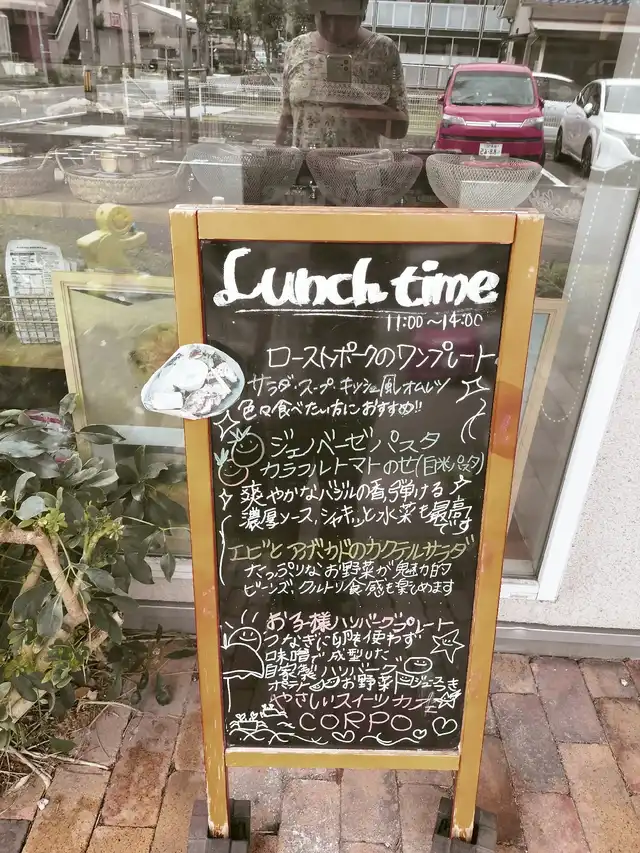 Lunch time
11:00～14:00
ローストポークのワンプレート
サラダ・スープ・キッシュ風オムレツ
色々食べたい方におすすめ!!
ジェノベーゼパスタ
カラフルトマトのせ(白米パスタ)
爽やかなバジルの香り弾ける
濃厚ソース、シャキッと水菜も最高です
エビとアボカドのカクテルサラダ
たっぷりな、お野菜が魅力的
ビーンズ、クルトン食感も楽しめます
お子様ハンバーグプレート
つなぎに卵味使わず
味噌で成型した
自家製ハンバーグ
お野菜 ジュースつき
やさしいスイーツカフェ
CORPO